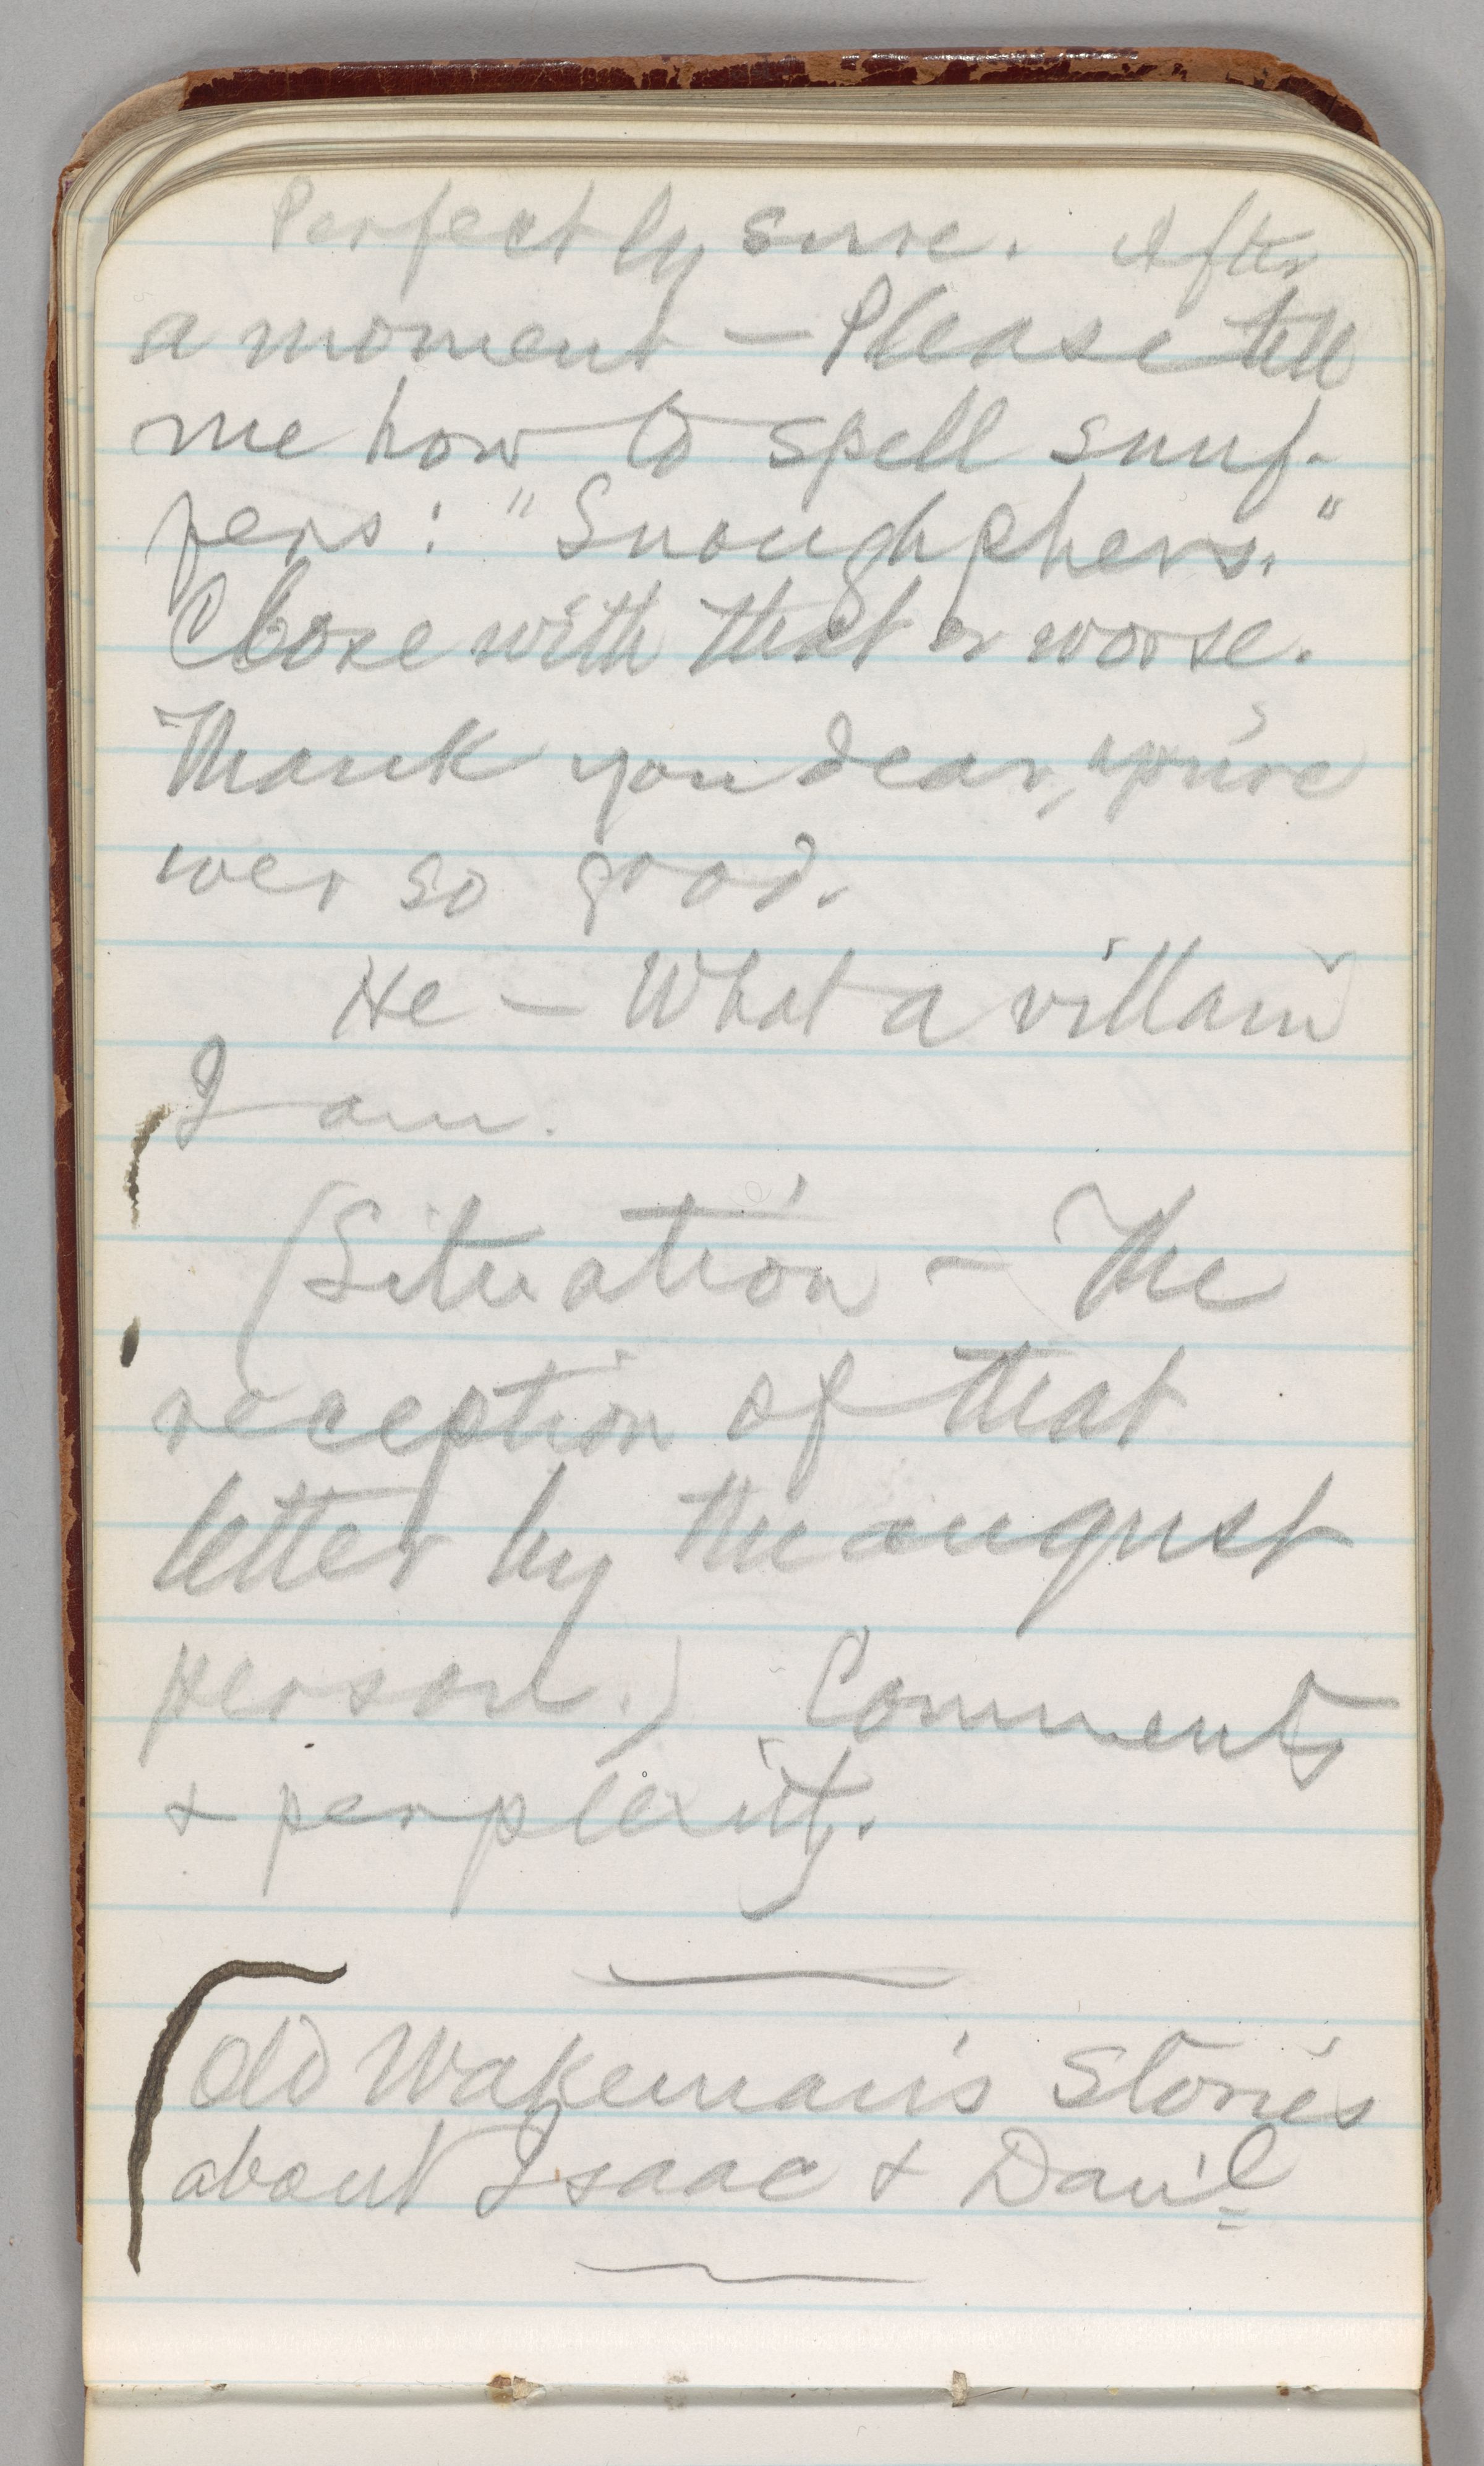 Perfectly sure. After
a moment – Please tell
me how to spell snuf-
fers: "Snoughphers."
Close with that or worse.
Thank you dear, you're
wer so good.
He – What a villain
I am.
(Situation – The
reception of that
letter by the august
person.) Comments
& perplexity.
Old Wakeman's stories
about Isaac & Dan'l